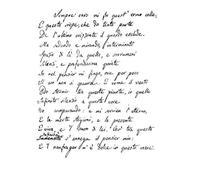 Sempre caro mi fu quest'ermo colle,
E questa siepe, che da tanta parte
De l'ultimo orizzonte il guardo esclude.
Ma sedendo e mirando, interminato
Spazio di là da quella, e sovrumani
Silenzi, e profondissima quiete
Io nel pensier mi fingo, ove per poco
Il cor non si spaura. E come il vento
Odo stormir tra queste piante, io quello
Infinito silenzio a questa voce
Vo comparando: e mi sovvien l'eterno,
E le morte stagioni, e la presente
E viva, e 'l suon di lei. Così tra questa
s'annega il pensier mio:
E 'l naufragar m'è dolce in questo mare.